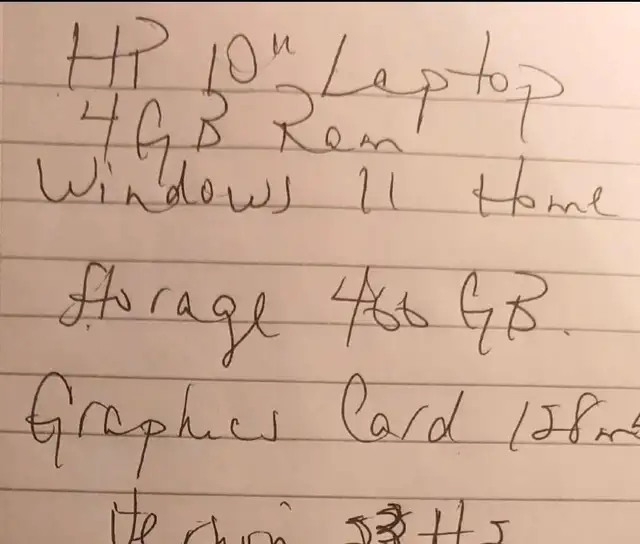 HP 10" Laptop
4GB Ram
Windows 11 Home
Storage 466 GB.
Graphics Card 128m